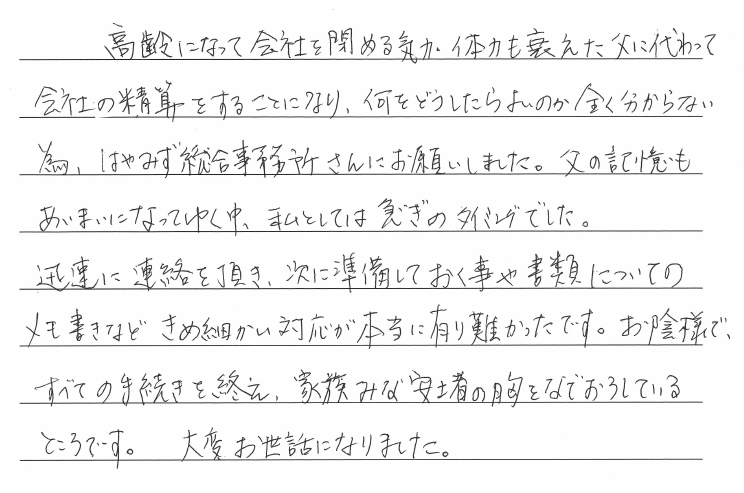 高齢になって会社を閉める気力・体力も衰えた父に代わって
会社の精算をすることになり、何をどうしたらよいのか全く分からない
為、はやみず総合事務所さんにお願いしました。父の記憶も
あいまいになってゆく中、私としては急ぎのタイミングでした。
迅速に連絡を頂き、次に準備しておく事や書類についての
メモ書きなどきめ細かい対応が本当に有り難かったです。お陰様で、
すべての手続きを終え、家族みな安堵の胸をなでおろしている
ところです。 大変お世話になりました。